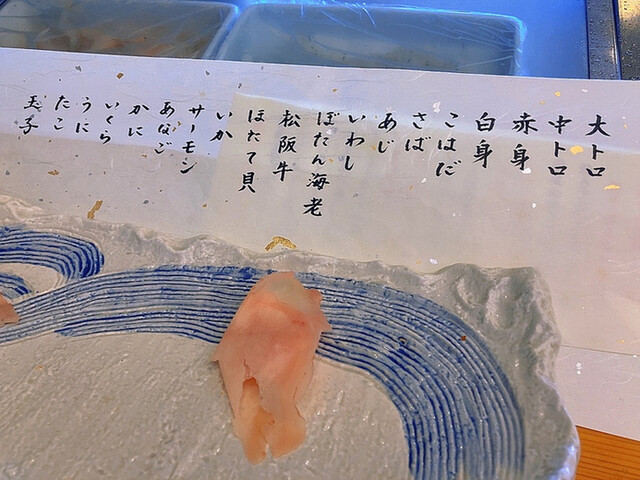 大トロ
中トロ
赤身
白身
こはだ
さば
あじ
いわし
ぼたん海老
松阪牛
ほたて貝
いか
サーモン
あなご
かに
いくら
うに
たこ
玉子